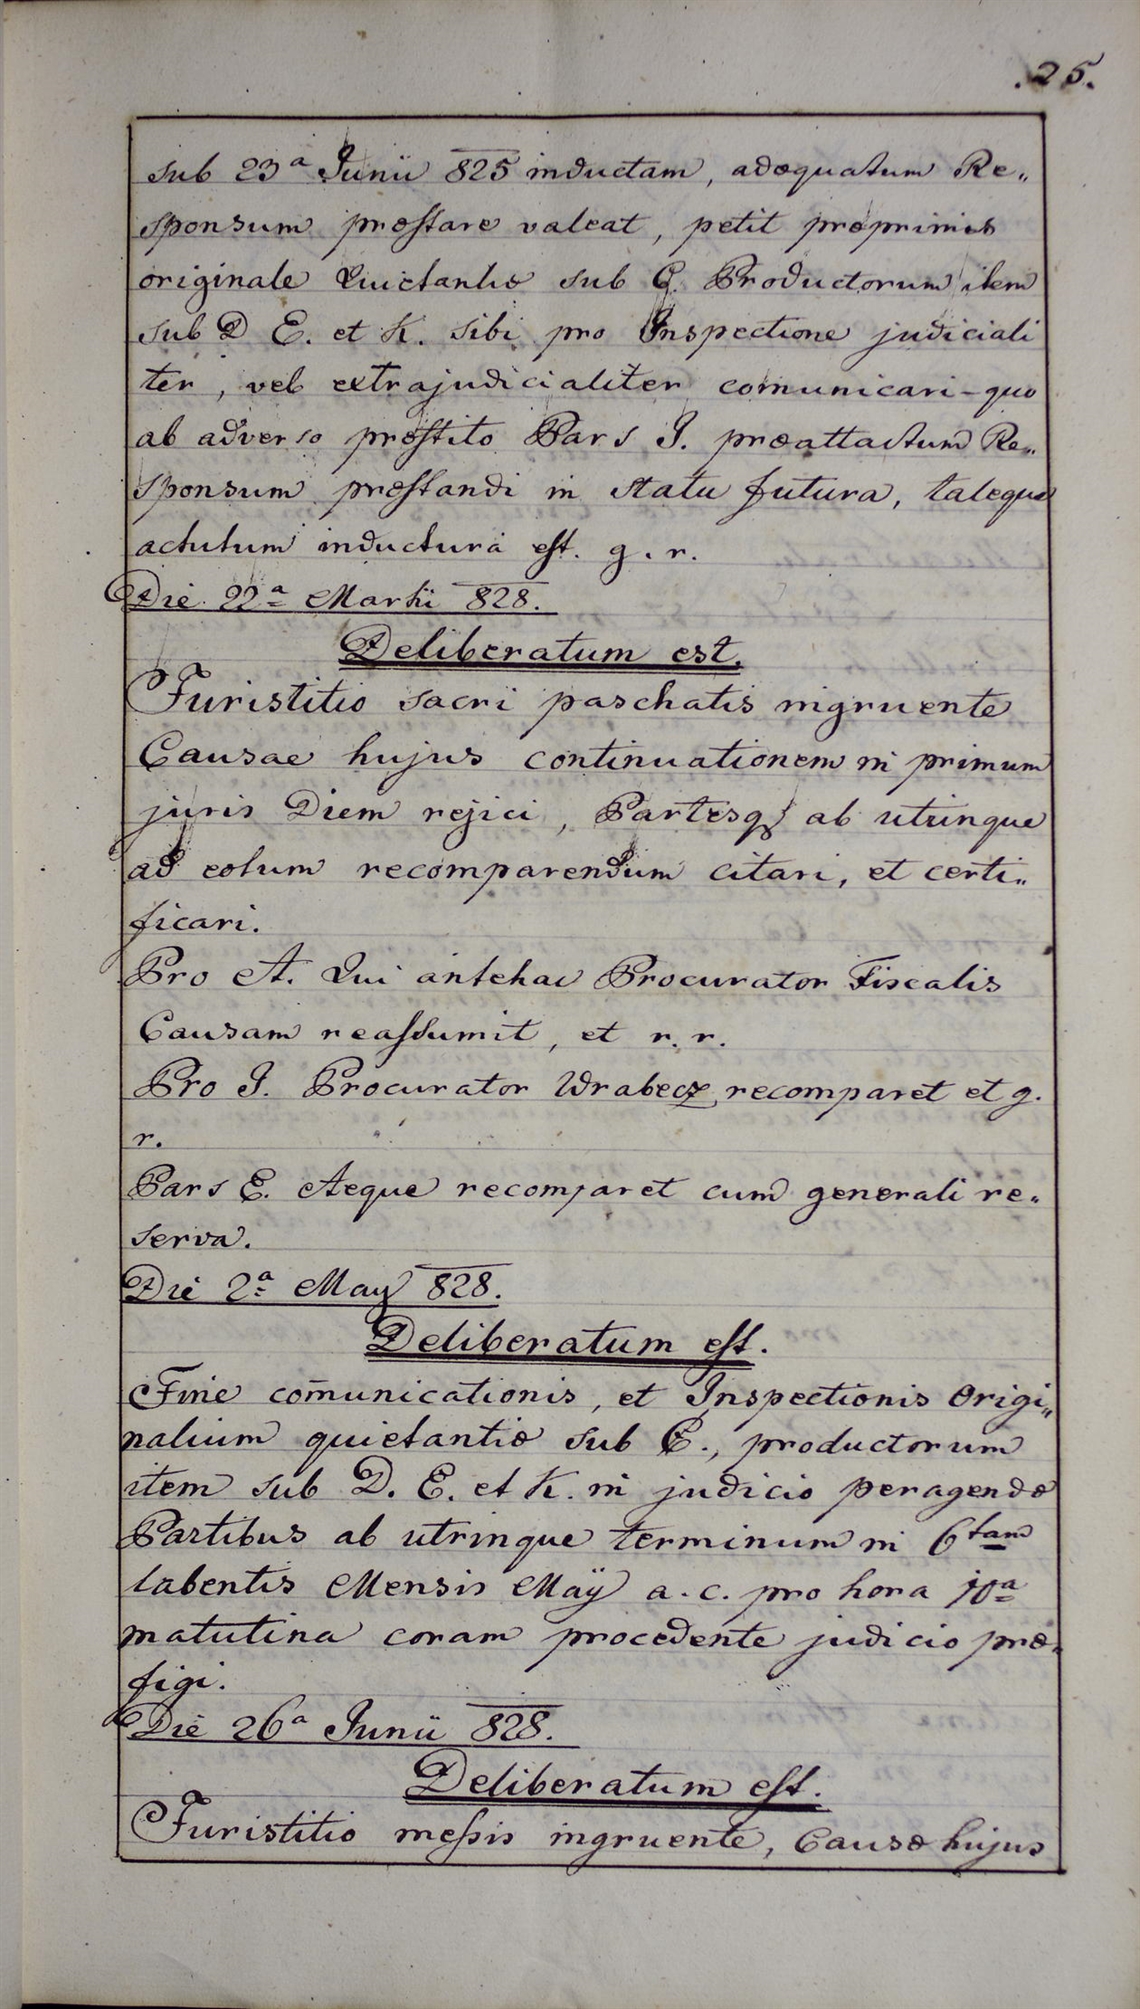 .25.
sub 23a Junii 825 inductam, adæquatum Re„
sponsum præstare valeat, petit præprimis
originale Quietantiæ sub C. Productorum item
sub D E. et K. sibi pro Inspectione judiciali
ter, vel extrajudicialiter comunicari - quo
ab adverso præstito Pars I. præattactum Re„
sponsum præstandi in statu futura, taleque
actutum inductura est. g. r.
Die 22a Martii 828.
Deliberatum est.
Juristitio sacri paschatis ingruente
Causae hujus continuationem in primum
juris Diem rejici, Partesq ab utrinque
ad eotum recomparendum citari, et certi„
ficari.
Pro A. Qui antehac Procurator Fiscalis
Causam reassumit, et r. r.
Pro I. Procurator Wrabecz recomparet et g.
r.
Pars E. Aeque recomparet cum generali re„
serva.
Die 2a May 828.
Deliberatum est.
Fine com̄unicationis, et Inspectionis Origi„
nalium quietantiæ sub C., productorum
item sub D. E. et K. in judicio peragendæ
Partibus ab utrinque terminum in 6tam
labentis Mensis Maÿ a. c. pro hora 10a
matutina coram procedente judicio præ„
figi.
Die 26a Junii 828.
Deliberatum est.
Juristitio messis ingruente, Causæ hujus